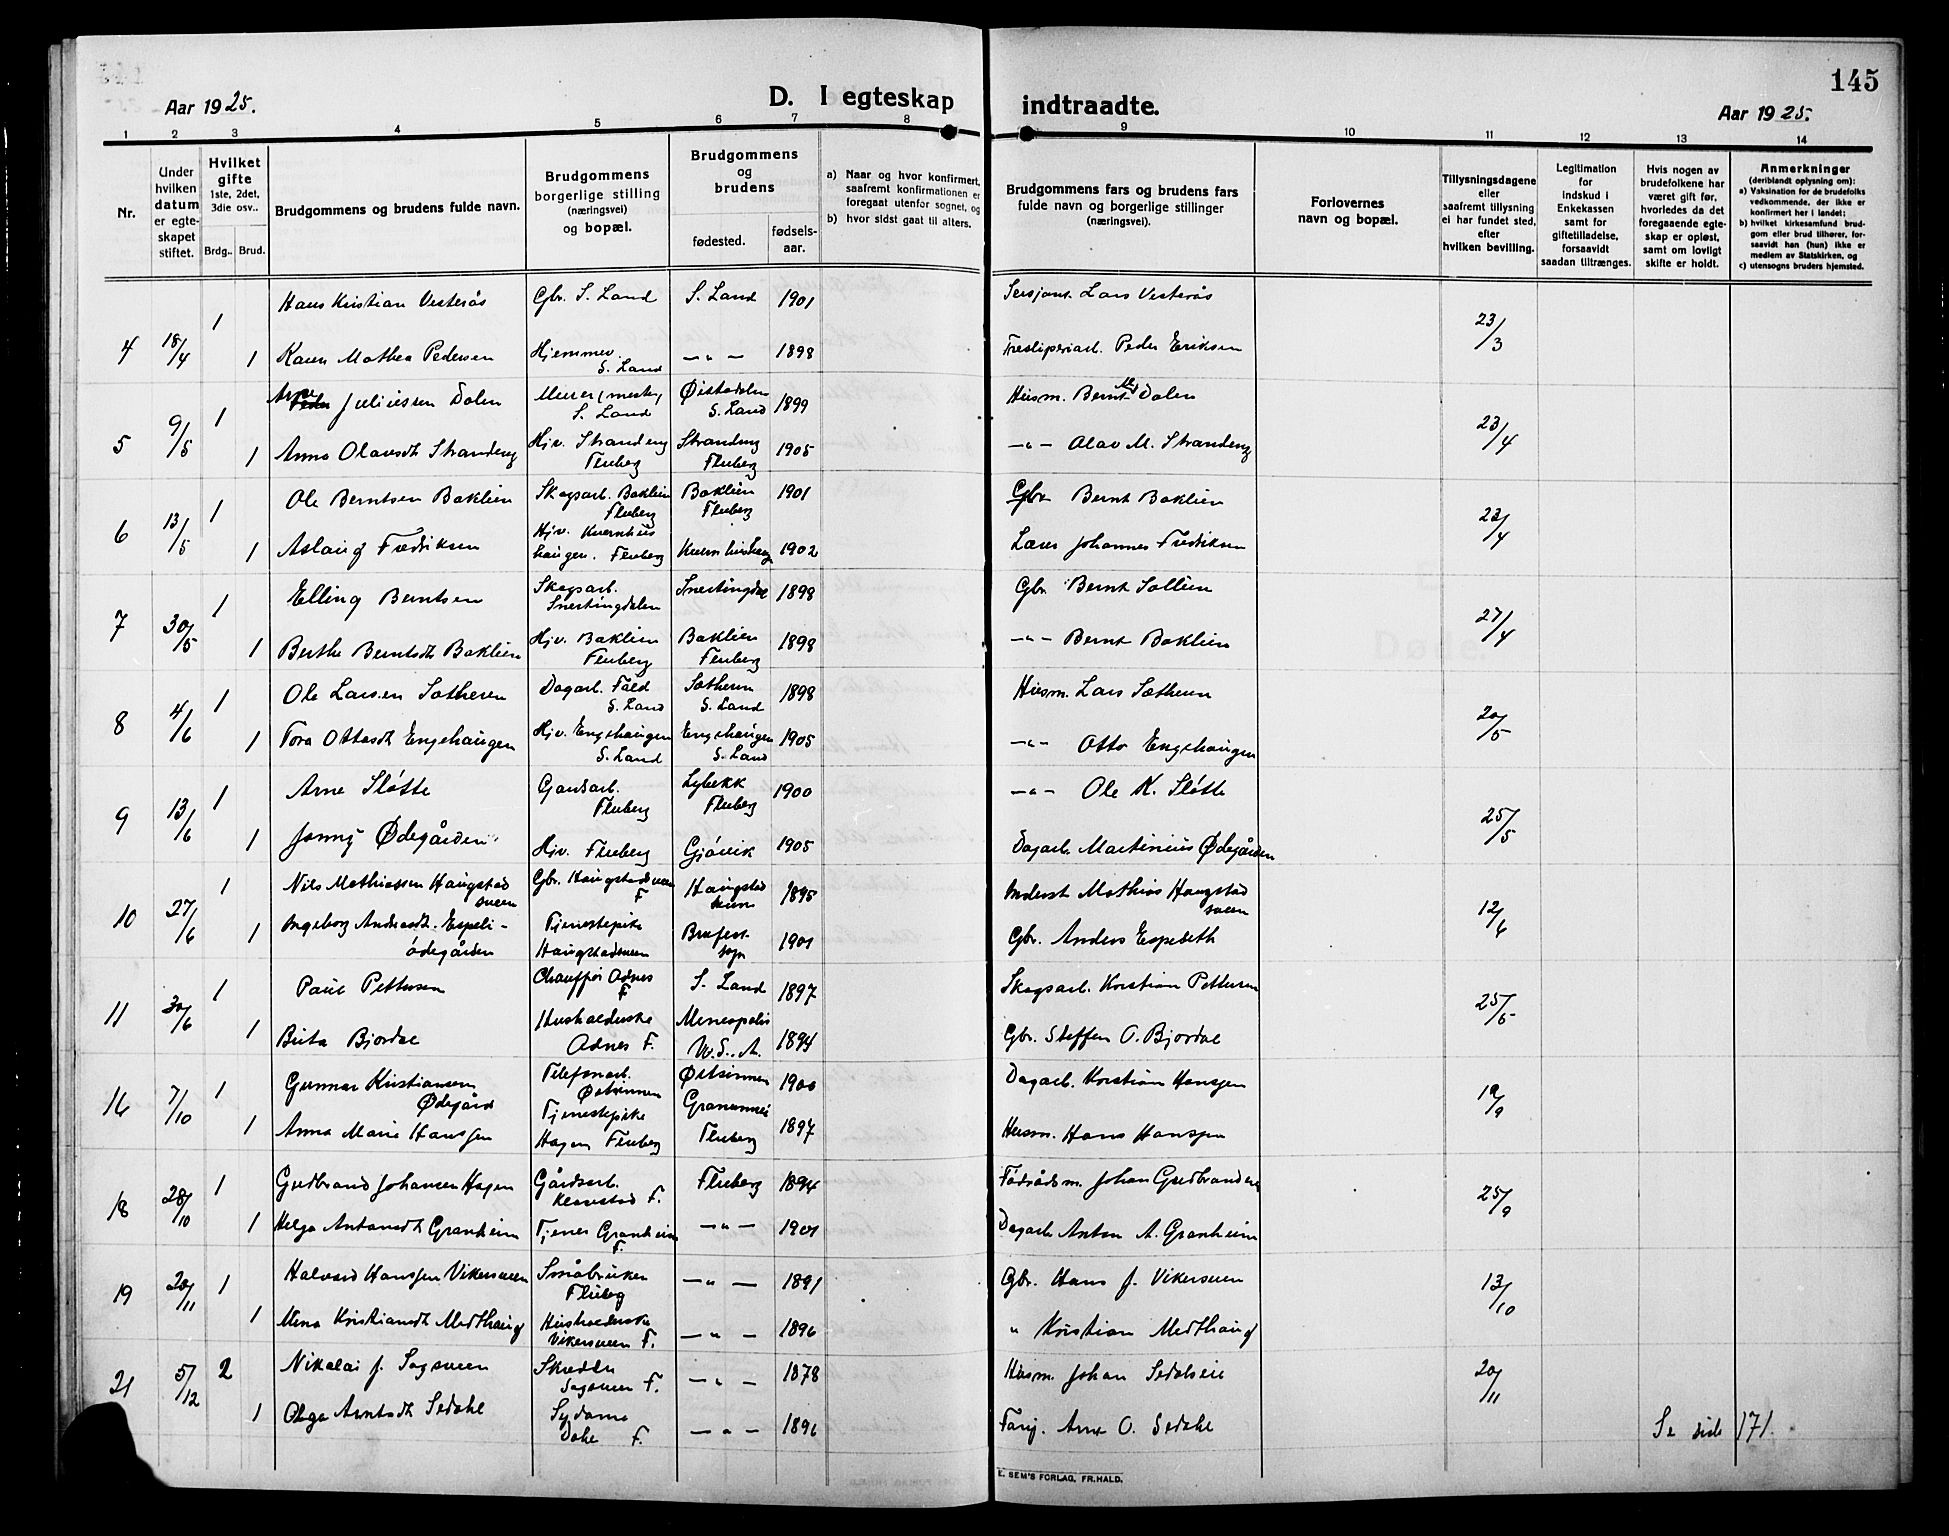 145
Aar 1925.
D. I egteskap indtraadte.
Aar 1925.
1 2 3 4 5 6 7 8 9 10 11 12 13 14
Nr.
Under hvilken datum er egte- skapet stiftet.
Hvilket gifte 1ste, 2det, 3die osv.. Brdg.. Brud.
Brudgommens og brudens fulde navn.
Brudgommens borgerlige stilling (næringsvei) og bopæl.
Brudgommens og brudens
fødested. fødsels- aar.
a) Naar og hvor konfirmert, saafremt konfirmationen er foregaat utenfor sognet, og
b) hvor sidst gaat til alters.
Brudgommens fars og brudens fars fulde navn og borgerlige stillinger (næringsvei).
Forlovernes navn og bopæl.
Tillysningsdagene eller saafremt tillysning ei har fundet sted, efter hvilken bevilling.
Legitimation for indskud i Enkekassen samt for giftetilladelse, forsaavidt saadan tiltrænges.
Hvis nogen av brudefolkene har været gift før, hvorledes da det foregaaende egte- skap er opløst, samt om lovligt skifte er holdt.
Anmerkninger (deriblandt oplysning om): a) Vaksination for de brudefolks vedkommende, der ikke er konfirmert her i landet; b) hvilket kirkesamfund brud- gom eller brud tilhører, for- saavidt han (hun) ikke er medlem av Statskirken, og c) utensogns bruders hjemsted.
4 18/4 1 Hans Kristian Vesterås Gbr. S. Land S. Land 1901 Sersjant Lars Vesterås 23/3
1 Karen Mathea Pedersen Hjemmev. S. Land — " — 1898 Tresliperiarb. Peder Eriksen
5 9/5 1 Arne Juliussen Dalen Murermester, S. Land Østsdalen S. Land 1899 Husm. Bernt M. Dalen 23/4
1 Anna Olavsdt Strandeng Hjv. Strandeng Fluberg Strandeng Fluberg 1905 — " — Olav M. Strandeng
6 13/5 1 Ole Berntsen Baklien Skogsarb. Baklien Fluberg Baklien Fluberg 1901 Gbr Bernt Baklien 23/4
1 Aslaug Fredriksen Hjv. Kvernhus haugen. Fluberg Kvernhushaug 1902 Lærer Johannes Fredriksen
7 30/5 1 Elling Berntsen Skogsarb. Snertingdalen Snertingdal 1898 Gbr Bernt Sollien 27/4
1 Berthe Berntsdt Baklien Hjv. Baklien Fluberg Baklien Fluberg 1898 — " — Bernt Baklien
8 4/6 1 Ole Larsen Sætheren Dagarb. Fald S. Land Sætheren S. Land 1898 Husm. Lars Sætheren 20/5
1 Tora Ottosdt Engehaugen Hjv. Engehaugen S. Land Engehaugen S. Land 1905 — " — Otto Engehaugen
9 13/6 1 Arne Sløtte Gårdsarb. Fluberg Lybekk Fluberg 1900 — " — Ole K. Sløtte 25/5
1 Jenny Ødegården Hjv. Fluberg Gjøvik 1905 Dagarb. Martinius Ødegården
10 27/6 1 Nils Mathiassen Haugstad sveen Gbr. Haugstadsveen F Haugstad sveen 1895 Mathias Haugstad sveen 12/6
1 Ingeborg Andersdt. Espeli- ødegården Tjenestepike Haugstadsveen 1901 Gbr. Anders Espeseth
11 30/6 1 Paul Pettersen Chauffør Odnes F S. Land 1897 Skogsarb. Kristian Pettersen 25/5
1 Brita Bjordal Husholderske Odnes F. Meneapolis U.S.A. 1894 Gbr. Steffen O. Bjordal
16 7/10 1 Gunnar Kristiansen Ødegård Telefonarb. Østsinnen Østsinnen 1900 Dagarb. Kristian Hansen 19/9
1 Anna Marie Hanssen Tjenestepike Hagen Fluberg Granumsei Fluberg 1897 Husm. Hans Hanssen
18 28/10 1 Gudbrand Johansen Hagen Gårdsarb. Klevstad F. Fluberg 1894 Fødrådsm. Johan Gudbrandsen 25/9
1 Helga Antonsdt Granheim Tjener Granheim F. — " — 1901 Dagarb Anton A. Granheim
19 20/11 1 Halvard Hanssen Vikersveen Småbruker Fluberg — " — 1891 Gbr. Hans J. Vikersveen 13/10
1 Mina Kristiansdt Medthaug Husholderske Vikersveen F. — " — 1896 " Kristian Medthaug
21 5/12 2 Nikolai J. Sagsveen Skredder Sagsveen F. — " — 1878 Husm. Johan Sedalseie 20/11
1 Olga Arntsdt Sedahl Sydame Dahl F. — " — 1896 Arne O. Sedahl Se side 171.
E. SEM'S FORLAG, FR.HALD.